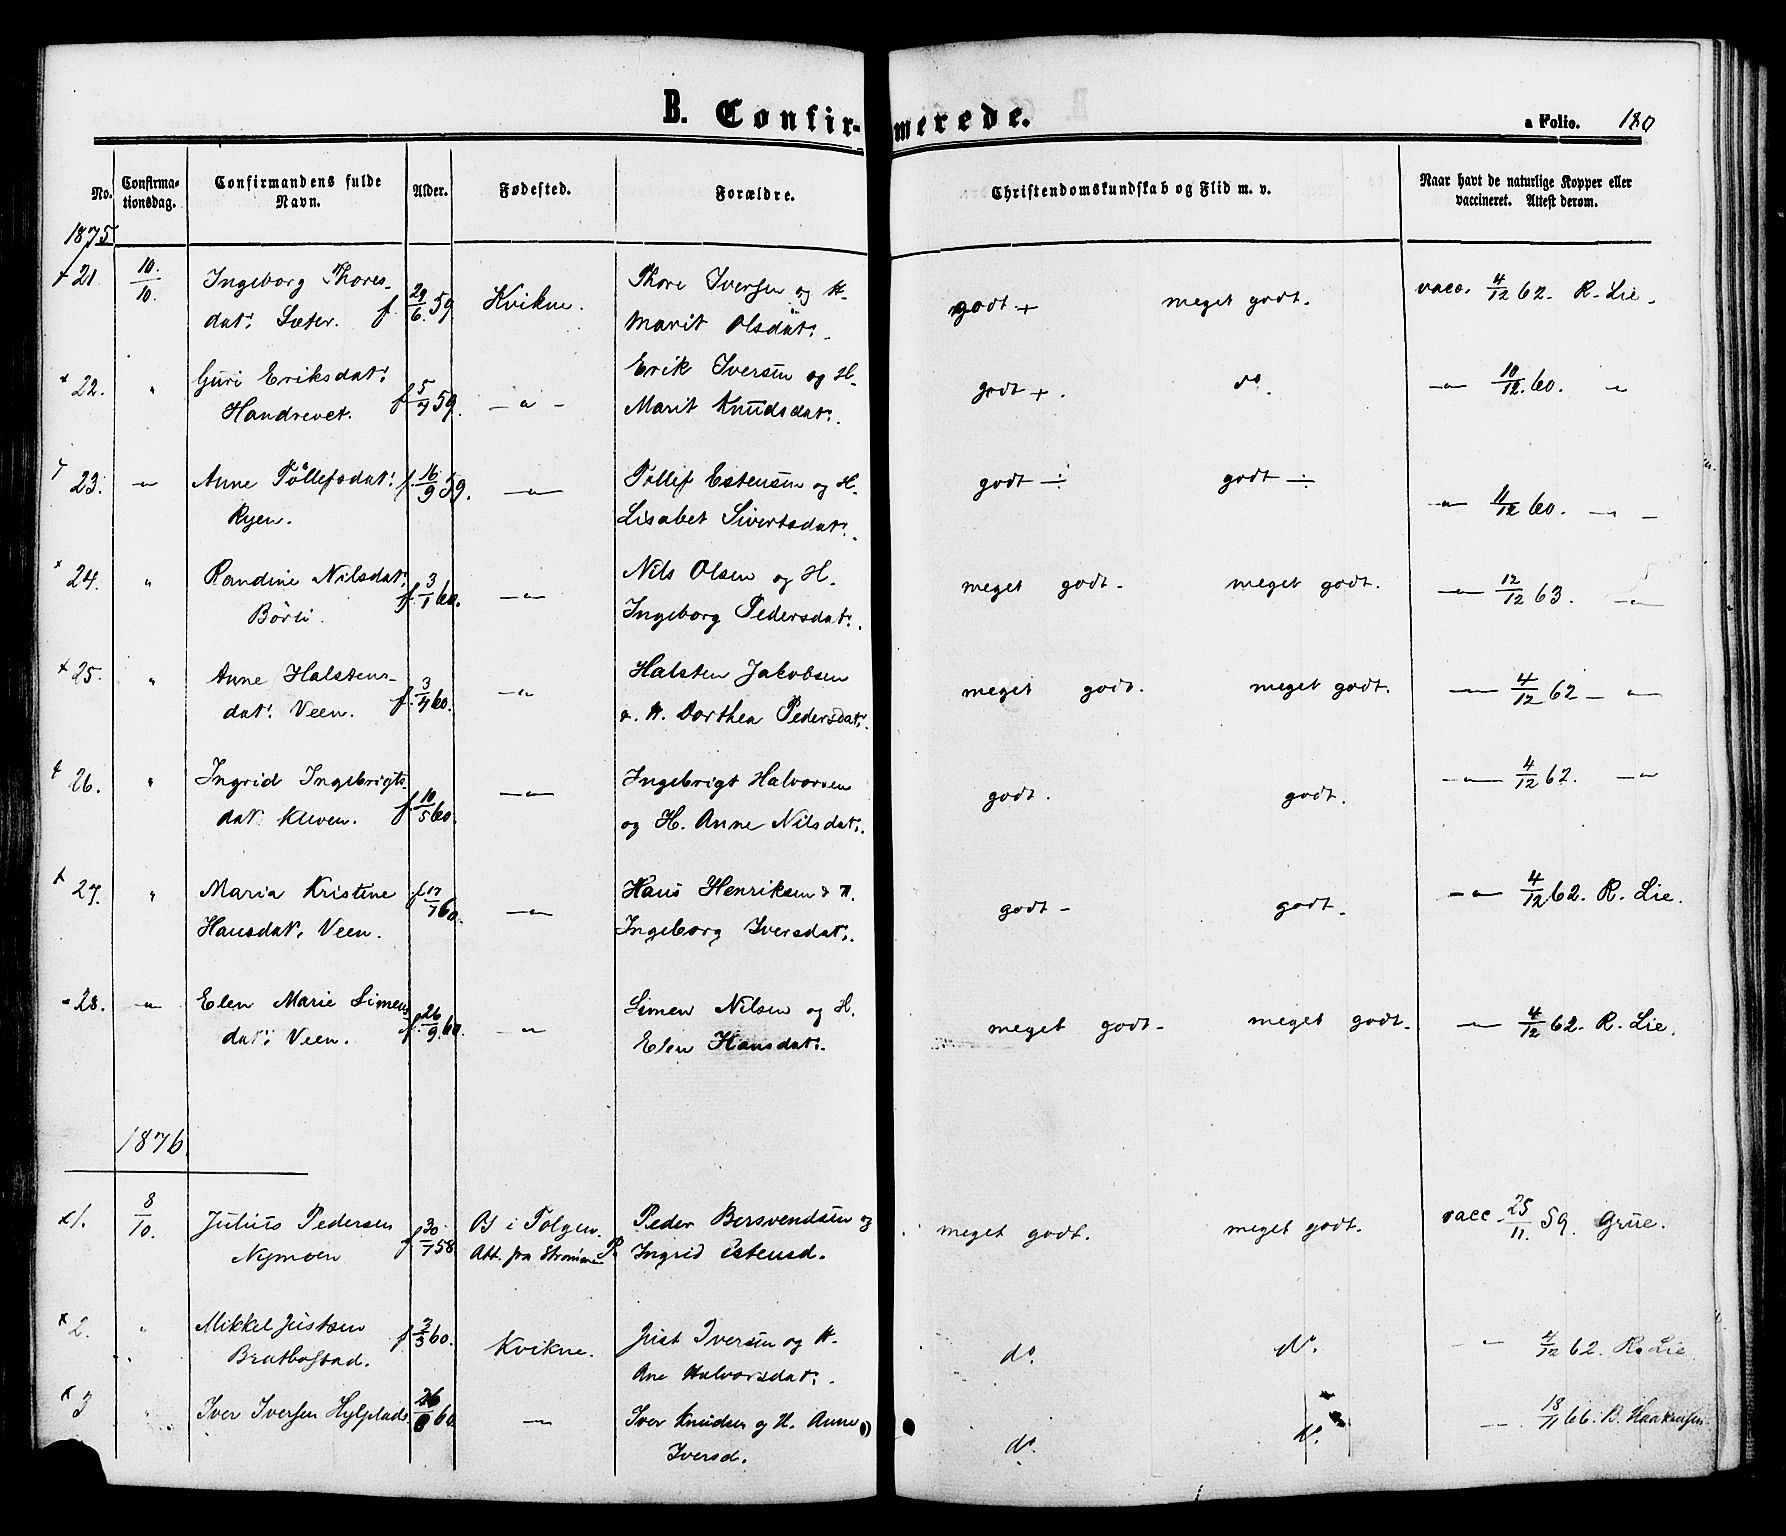 B. Confir-merede.
a Folio. 180
No. Confirma-tionsdag. Confirmandens fulde Navn. Alder. Fødested. Forældre. Christendomskundskab og Flid m. v. Naar havt de naturlige Kopper eller vaccineret. Attest derom.
1875
21. 10/10. Ingeborg Thores- f. 29/6 59 Kvikne. Thore Iversen og H. godt + meget godt. vacc. 4/12 62. R. Lie.
dat: Sæter. Marit Olsdat:
22. " Guri Eriksdat: f. 5/7 59. —"— Erik Iversen og H. godt +. do. —"— 10/12 60. "
Handrevet. Marit Knudsdat:.
23. —"— Anne Tollefsdat: f. 16/9 59. —"— Tollef Estensen og H. godt ÷ godt ÷ —"— 11/12 60. —"—
Ryen. Lisabet Sivertsdat:.
24. " Randine Nilsdat. f. 3/1 60. —"— Nils Olsen og H. meget godt. meget godt. —"— 12/12 63. —"—
Børli. Ingeborg Pedersdat:.
25. " Anne Halstens- f. 3/4 60. —"— Halsten Jakobsen meget godt. meget godt. —"— 4/12 62 — "—
dat: Veen. o. H. Dorthea Pedersdat:.
26. " Ingrid Ingebrigts f. 10/5 60. —"— Ingebrigt Halvorsen godt. godt. —"— 4/12 62. —"
dat: Kleven. og H. Anne Nilsdat:.
27. " Maria Kristine f. 17/7 60. —"— Hans Henriksen & H. godt - godt. —"— 4/12 62. R. Lie.
Hansdat: Veen. Ingeborg Iversdat:.
28. —"— Elen Marie Simens f. 26/9. 60. —"— Simen Nilsen og H. meget godt - meget godt. —"— 4/12 62. R. Lie.
dat: Veen. Elen Hansdat:.
1876
1. 8/10. Julius Pedersen f. 30/7 58 Peder Bersvendsen og meget godt. meget godt. vacc. 25/11. 59. Grüe.
Nymoen i Tolgen. Att. fra Ingrid Estensd.
2. " Mikkel Justsen f. 2/3 60. Kvikne. Just Iversen og H. do. do. " 4/12 62. R. Lie
Bratbostad. Ane Halvorsdat:.
3 " Iver Iversen f. 26/8 60 —"— Iver Knudsen og H. Anne do. do. — 18/11 66. B. Haakensen
Iversd.